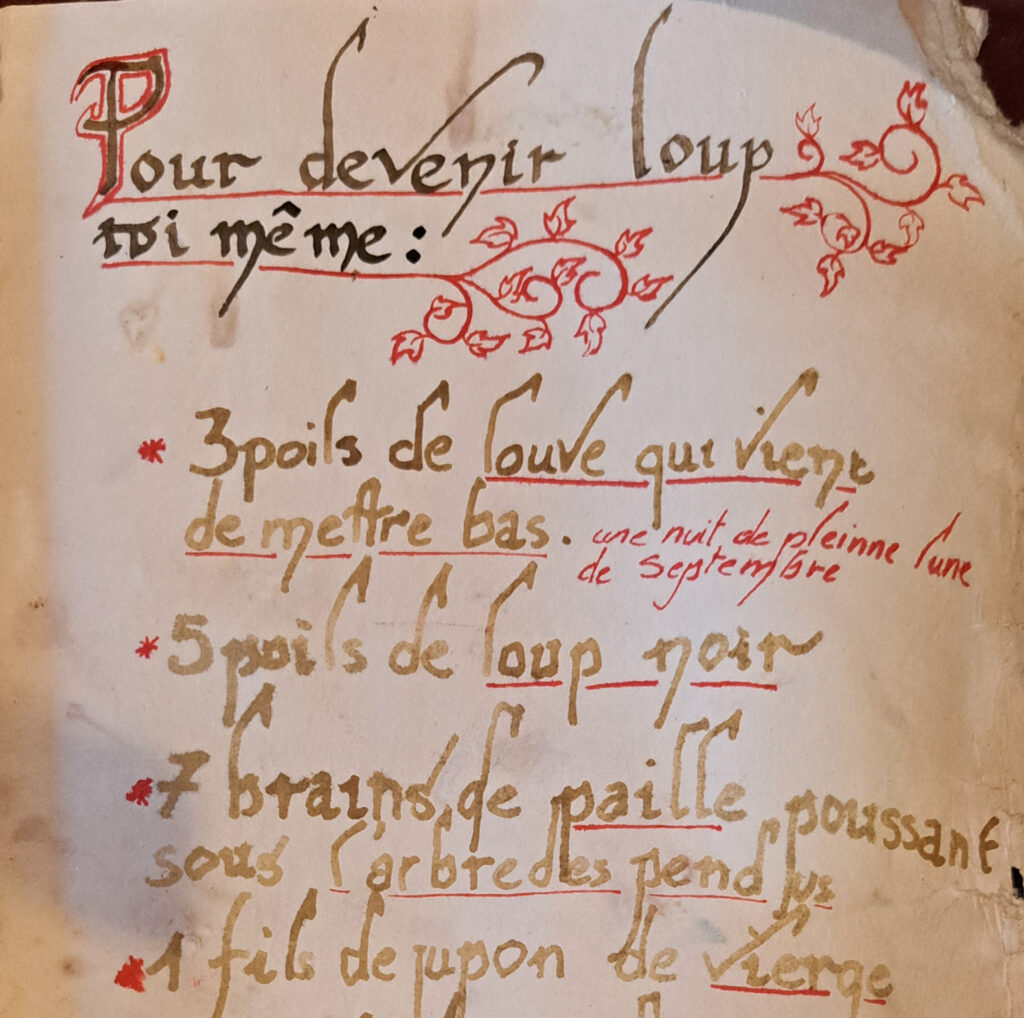 Pour devenir loup
toi même :
* 3 poils de louve qui vient
de mettre bas. une nuit de pleinne lune
de septembre
* 5 poils de loup noir
* 7 brains de paille poussant
sous l'arbre des pendus
* 1 fils de jupon de vierge